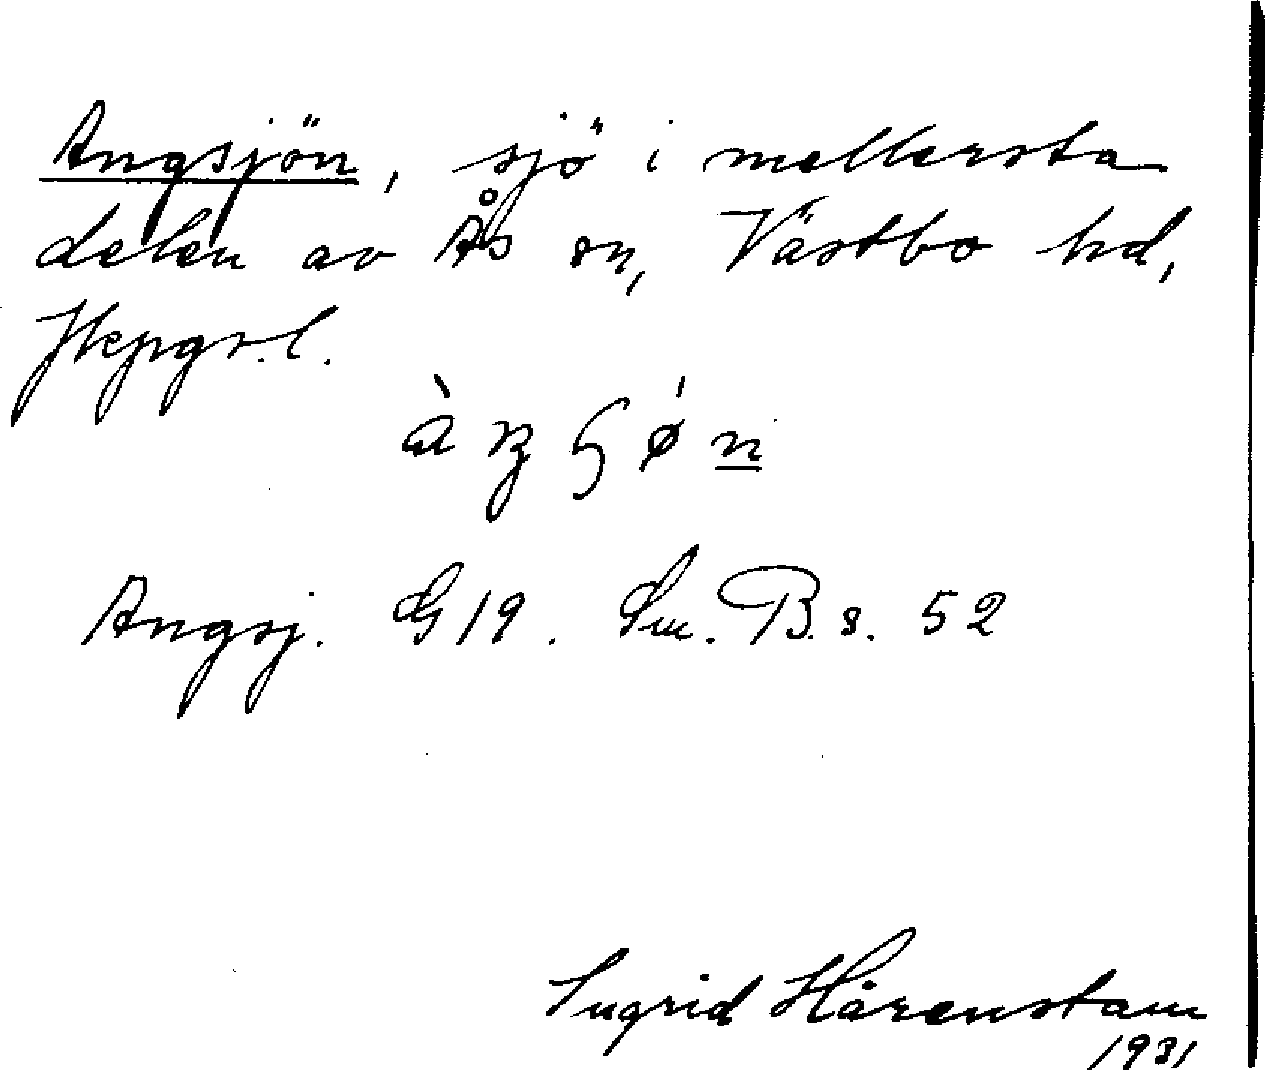 Angsjön, sjö i mellersta
delen av Ås sn, Västbo hd,
Jkpgs. l.
Angsj. G 19. Sm. B. s. 52
Ingrid Härenstam
1931